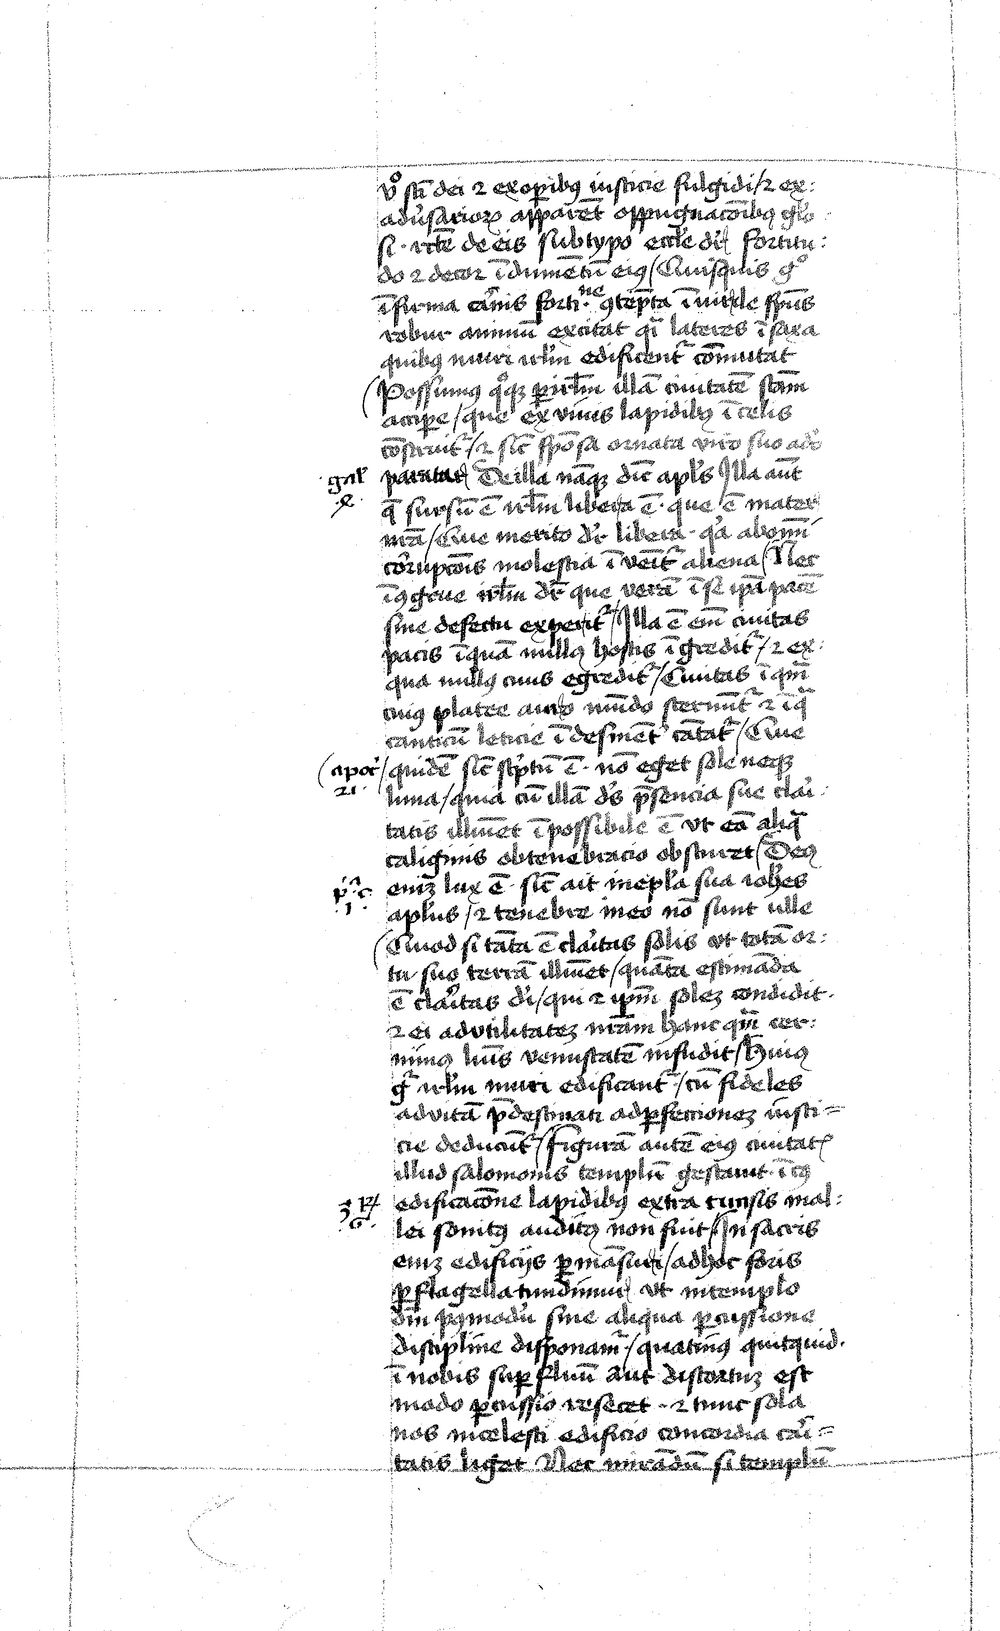 v̊o sc̄i dei ⁊ ex op̲ibꝰ iusticie fulgidi / ⁊ ex :
adũsarioꝝ apparēt oppugnac̄oibꝰ gl̄o
si · rc̄te de eis sub typo eccl̄e dr̄ fortitu :
do ⁊ decor īdumētū eiꝰ / Quisquis gͦ
īfirma car̄nis forti.ne ꝯtēpta ī uirtute sp̄us
robur animū excitat q̄i lateres ī saxa
quibꝰ muri irl̄m edificent᷑ cōmutat
( Possumꝰ qͦqꝫ p̲ irl̄m illā ciuitatē sc̄am
accipe / que ex viuis lapidibꝰ ī celis
cōstruit᷑ / ⁊ sic̄ spōsa ornata viro suo ad̄o
gal̄ paratat᷑ De illa nāqꝫ dic̄ apl̄s Illa aut̄
4 q̄ sursū ē irl̄m libera ē · que ē mater
nr̄a / Que merito dr̄ libera · qͣ ab om̄i
corrupc̄ois molestia īvenit᷑ aliena / Nec
īꝯgrue irl̄m dr̄ que verā ī se ip̄a pacē
sine defectu experit᷑ / Illa ē em̄ ciuitas
pacis ī quā nullꝰ hostis īgredit᷑ / ⁊ ex :
qua nullꝰ ciuis egredit᷑ / Ciuitas ī qm̄
cuiꝰ platee auro mūdo sternunt᷑ ⁊ ī qͣ
canticū leticie īdesinent᷑ cātat᷑ / Que
( apoc̄ / quidē sic̄ sc̄ptū ē · nō eget sole neqꝫ
21 · luna / quia cū illā d̄s p̄sencia sue clai :
tatis illuīet īpossibile ē vt eā aliqͣ
caliginis obtenebracio obscuret / Deꝰ
p̲ᵃ c̄ enīꝫ lux ē · sic̄ ait in epl̄a sua ioh̄es
1 · apl̄us / ⁊ tenebre in eo nō sunt ulle
( Quod si tāta ē claīt̄as solis vt totā or :
tu suo terrā illuīet / quāta estimāda
ē claīt̄as di̅ / qui ⁊ ip̄m solez condidit .
⁊ ei ad vtilitatez nr̄am hanc qm̄ cer :
nimꝰ luīs venustatē infudit / Huiꝰ
gͦ irl̄m muri edificant᷑ / cū fideles
ad vitā p̄destinati ad p̲fectionez iusti =
cie deducūt᷑ / Figurā autē eiꝰ ciuitat᷑
illud salomonis templū gestauit · ī cꝰ
3 Rͫ edificac̄one lapidibꝰ extra tunsis mal :
6 · lei sonitꝰ auditꝰ non fuit / In sacris
enīꝫ edificijs p̲māsuri / ad hoc foris
p̲ flagella tundimur vt in templo
dn̄i p9modū sine aliqua p̲cussione
discipline disponam᷑ / quatinꝰ quitquid .
ī nobis sup̲ fluū aut distortuꝫ est
modo p̲cussio resecet · ⁊ tunc sola
nos in celesti edificio concordia cari =
tatis liget Nec mirādū si templū